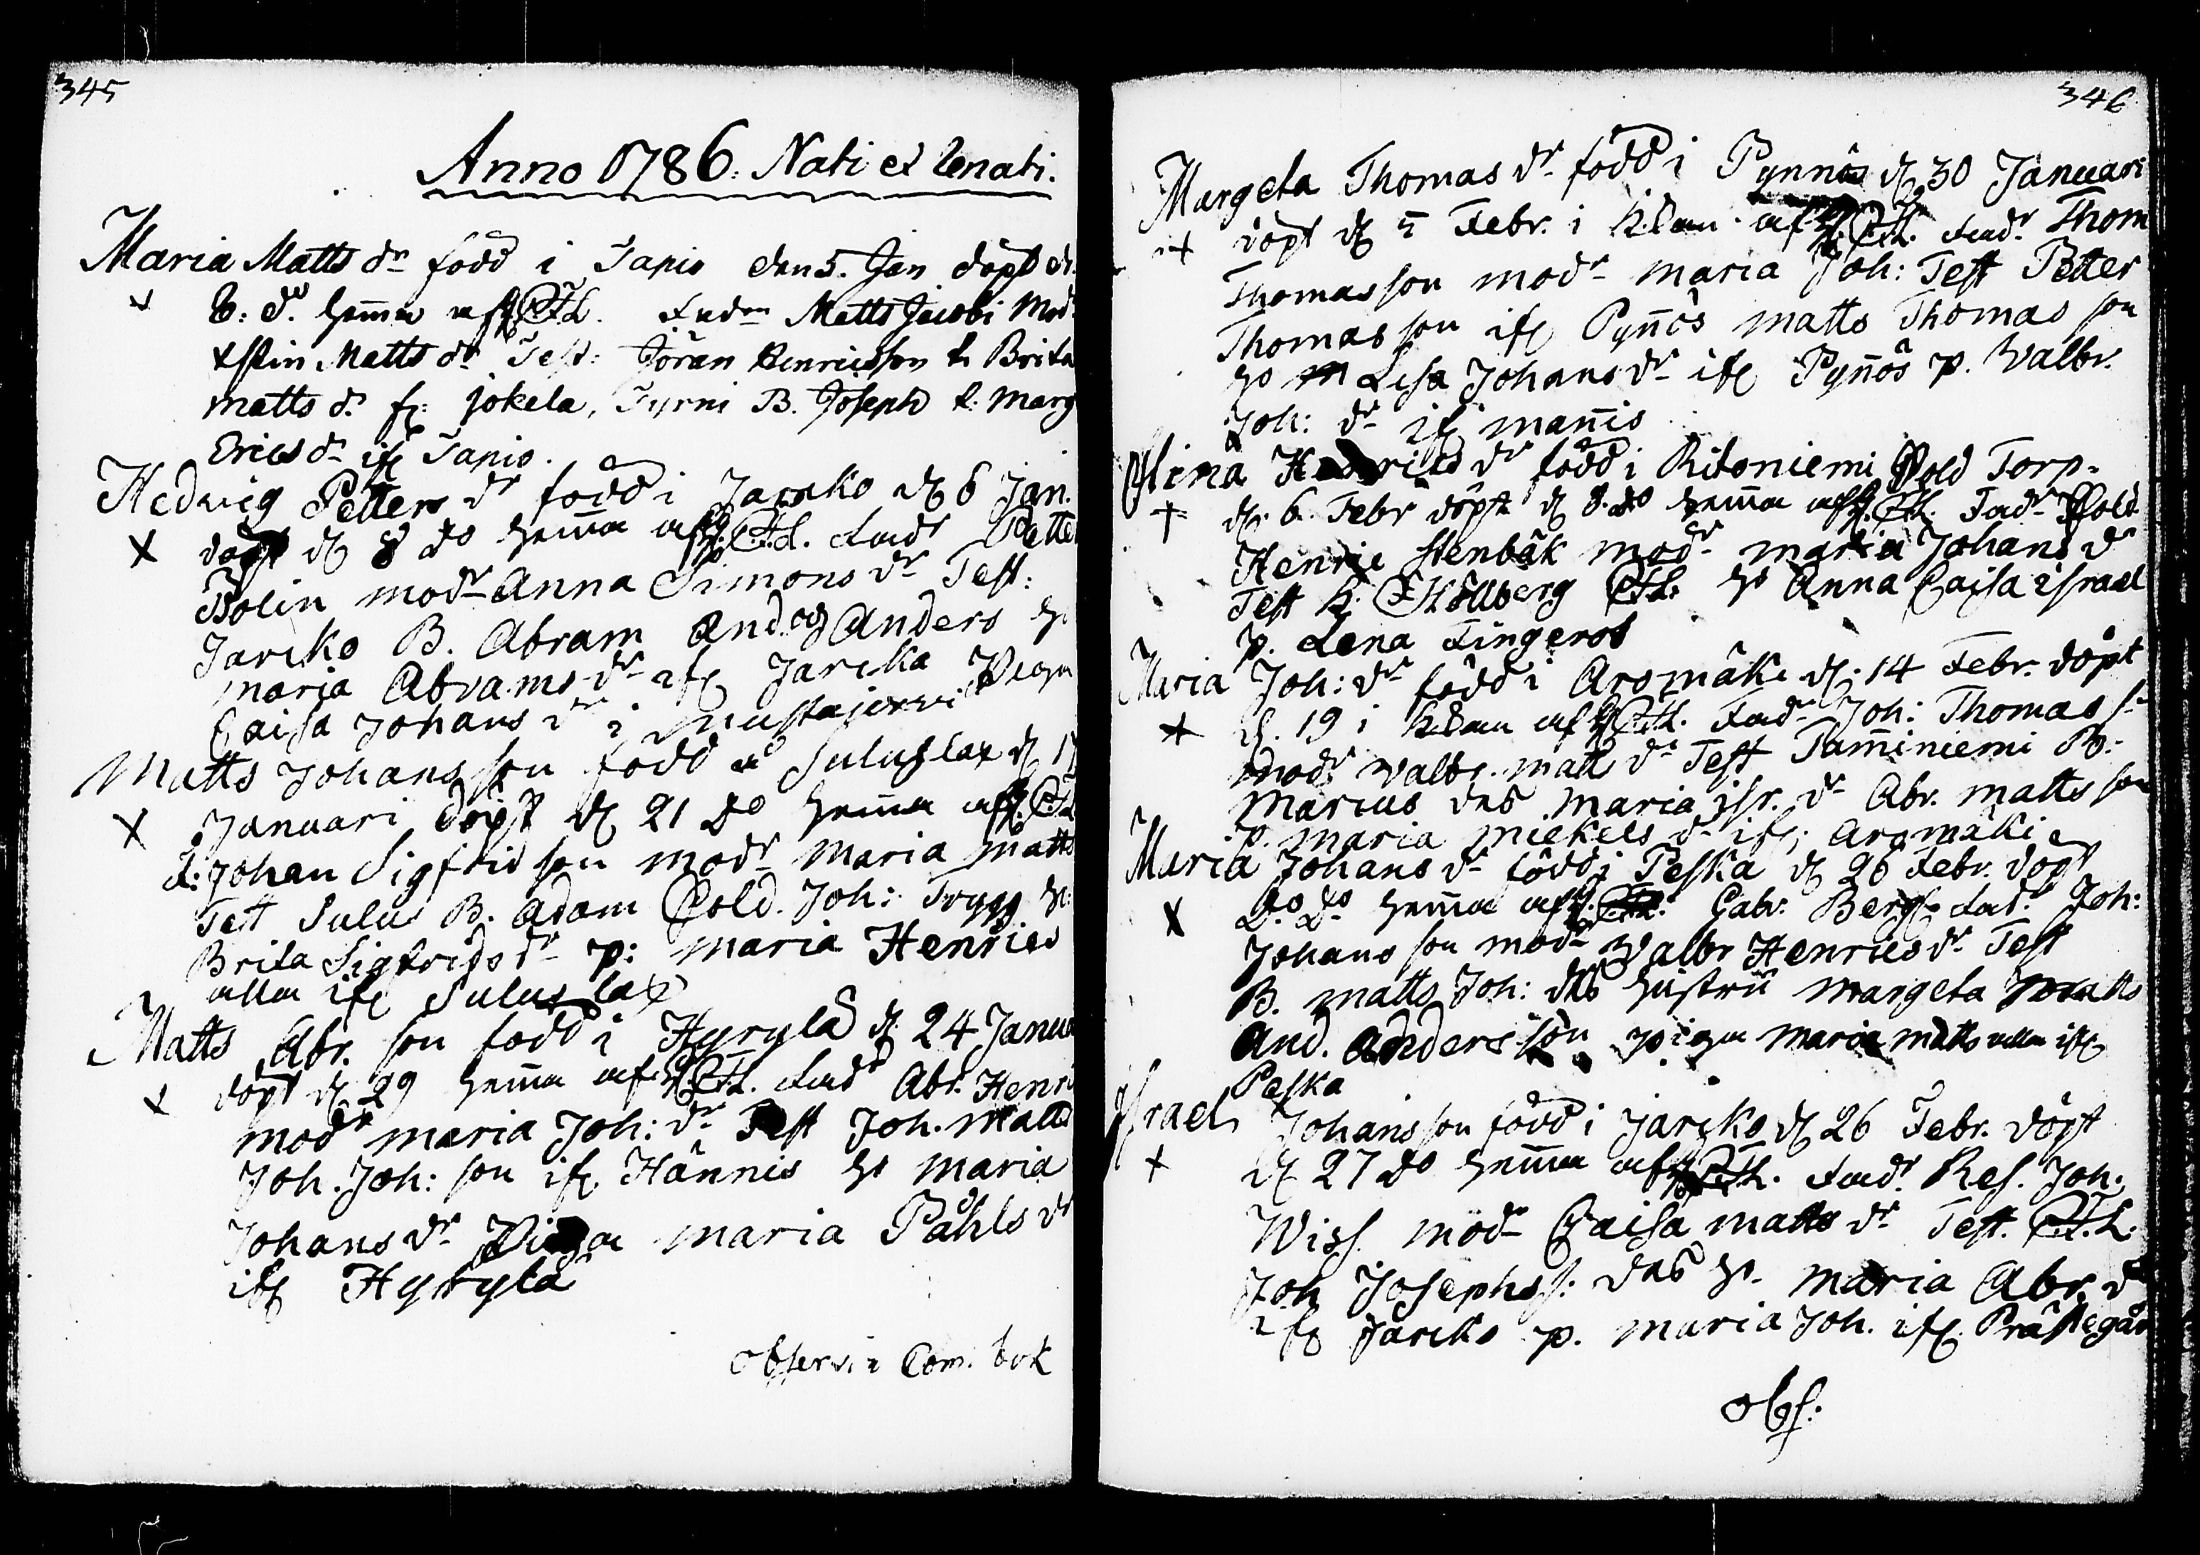 345
Anno 1786. Nati et Renati.
Maria Matts dr född i Tapio den 5. Jan döpt d.
8. d. hem̄a af H. C. F. L. Fadn Matts Jacobi Mod.
Matts dr Test: Jöran Henricsson h. Brita
Matts d. fr. Jokela, Tyrni B. Joseph h. Marg
Erics dr ifr. Tapio.
Hedwig Petters dr född i Jarcko d. 6 Jan.
döpt d. 8 do hem̄a af H. C. F. L. Fadr Petter
Bolin modr Anna Simons dr Test:
Jarcko B. Abram And. och Anders h
Maria Abrams dr ifr. Jarcka Pigan
Caisa Johans dr i Mustajerwi
Matts Johans son född å Suluslax d.
Januari döpt d. 21 do hem̄a af
F: Johan Sigfrid son modr Maria Matts
Test Sulus B. Adam Sold. Joh: Trygg h:
Brita Sigfrids dr p: Maria Henrics
alla ifr. Suluslax
Matts Abr. son född i Hyrylä d. 24 Janua
döpt d. 29 hem̄a af H. C. F. L. Fadr Abr. Henri
modr Maria Joh: dr Test Joh. Matts
Joh. Joh: son ifr. Hännis h. Maria
Johans dr Pigan Maria Påhls dr
ifr. Hyrylä
observ. i Com. bok
346
Margeta Thomas dr född i Pynnös d. 30 Januari
döpt d. 5 Febr. i kyrkan af H. C. F. L. Fadr Thom
Thomasson modr Maria Joh: Test Petter
Thomas son ifr. Pyn̄ös Matts Thomas son
h. Lisa Johans dr ifr. Pyn̄ös p. Walbr.
Joh: dr ifr. Man̄is
Stina Henrics dr född i Ritoniemi Sold Torp.
d. 6. Febr döpt d. 8. do hem̄a af H. C. F. L. Fadr Sold
Henric Stenbäk modr Maria Johans dr
Test h. C. F. L. h. Anna Caisa Israel
p. Lena Fingeros
Maria Joh: dr född i Aromäki d. 14 Febr. döpt
d. 19 i kyrkan af H. C. F. L. Fadr Joh: Thomas s.
modr Walbr. Matts dr Test Tam̄iniemi B.
Marcus des Maria Isr. dr Abr. Matts son
p. Maria Mickels dr ifr. Aromäki
Maria Johans dr född i Peska d. 26 Febr. döpt
do do hem̄a af Gabr. Bergh Fadr. Joh:
Johans son modr Walbr Henrics dr Test
B. Matts Joh: des hustru Margeta Matts
And. Anders son pigan Maria Matts alla ifr.
Peska
Israel Johans son född i Jarcko d. 26 Febr. döpt
d. 27 do hem̄a af H. C. F. L. Fadr. Res. Joh.
Wiss. modr Caisa Matts dr Test. C. F. L.
Joh Josephs s: des h. Maria Abr. dr
ifr. Jarcko p. Maria Joh. ifr. Prästegår
obs: